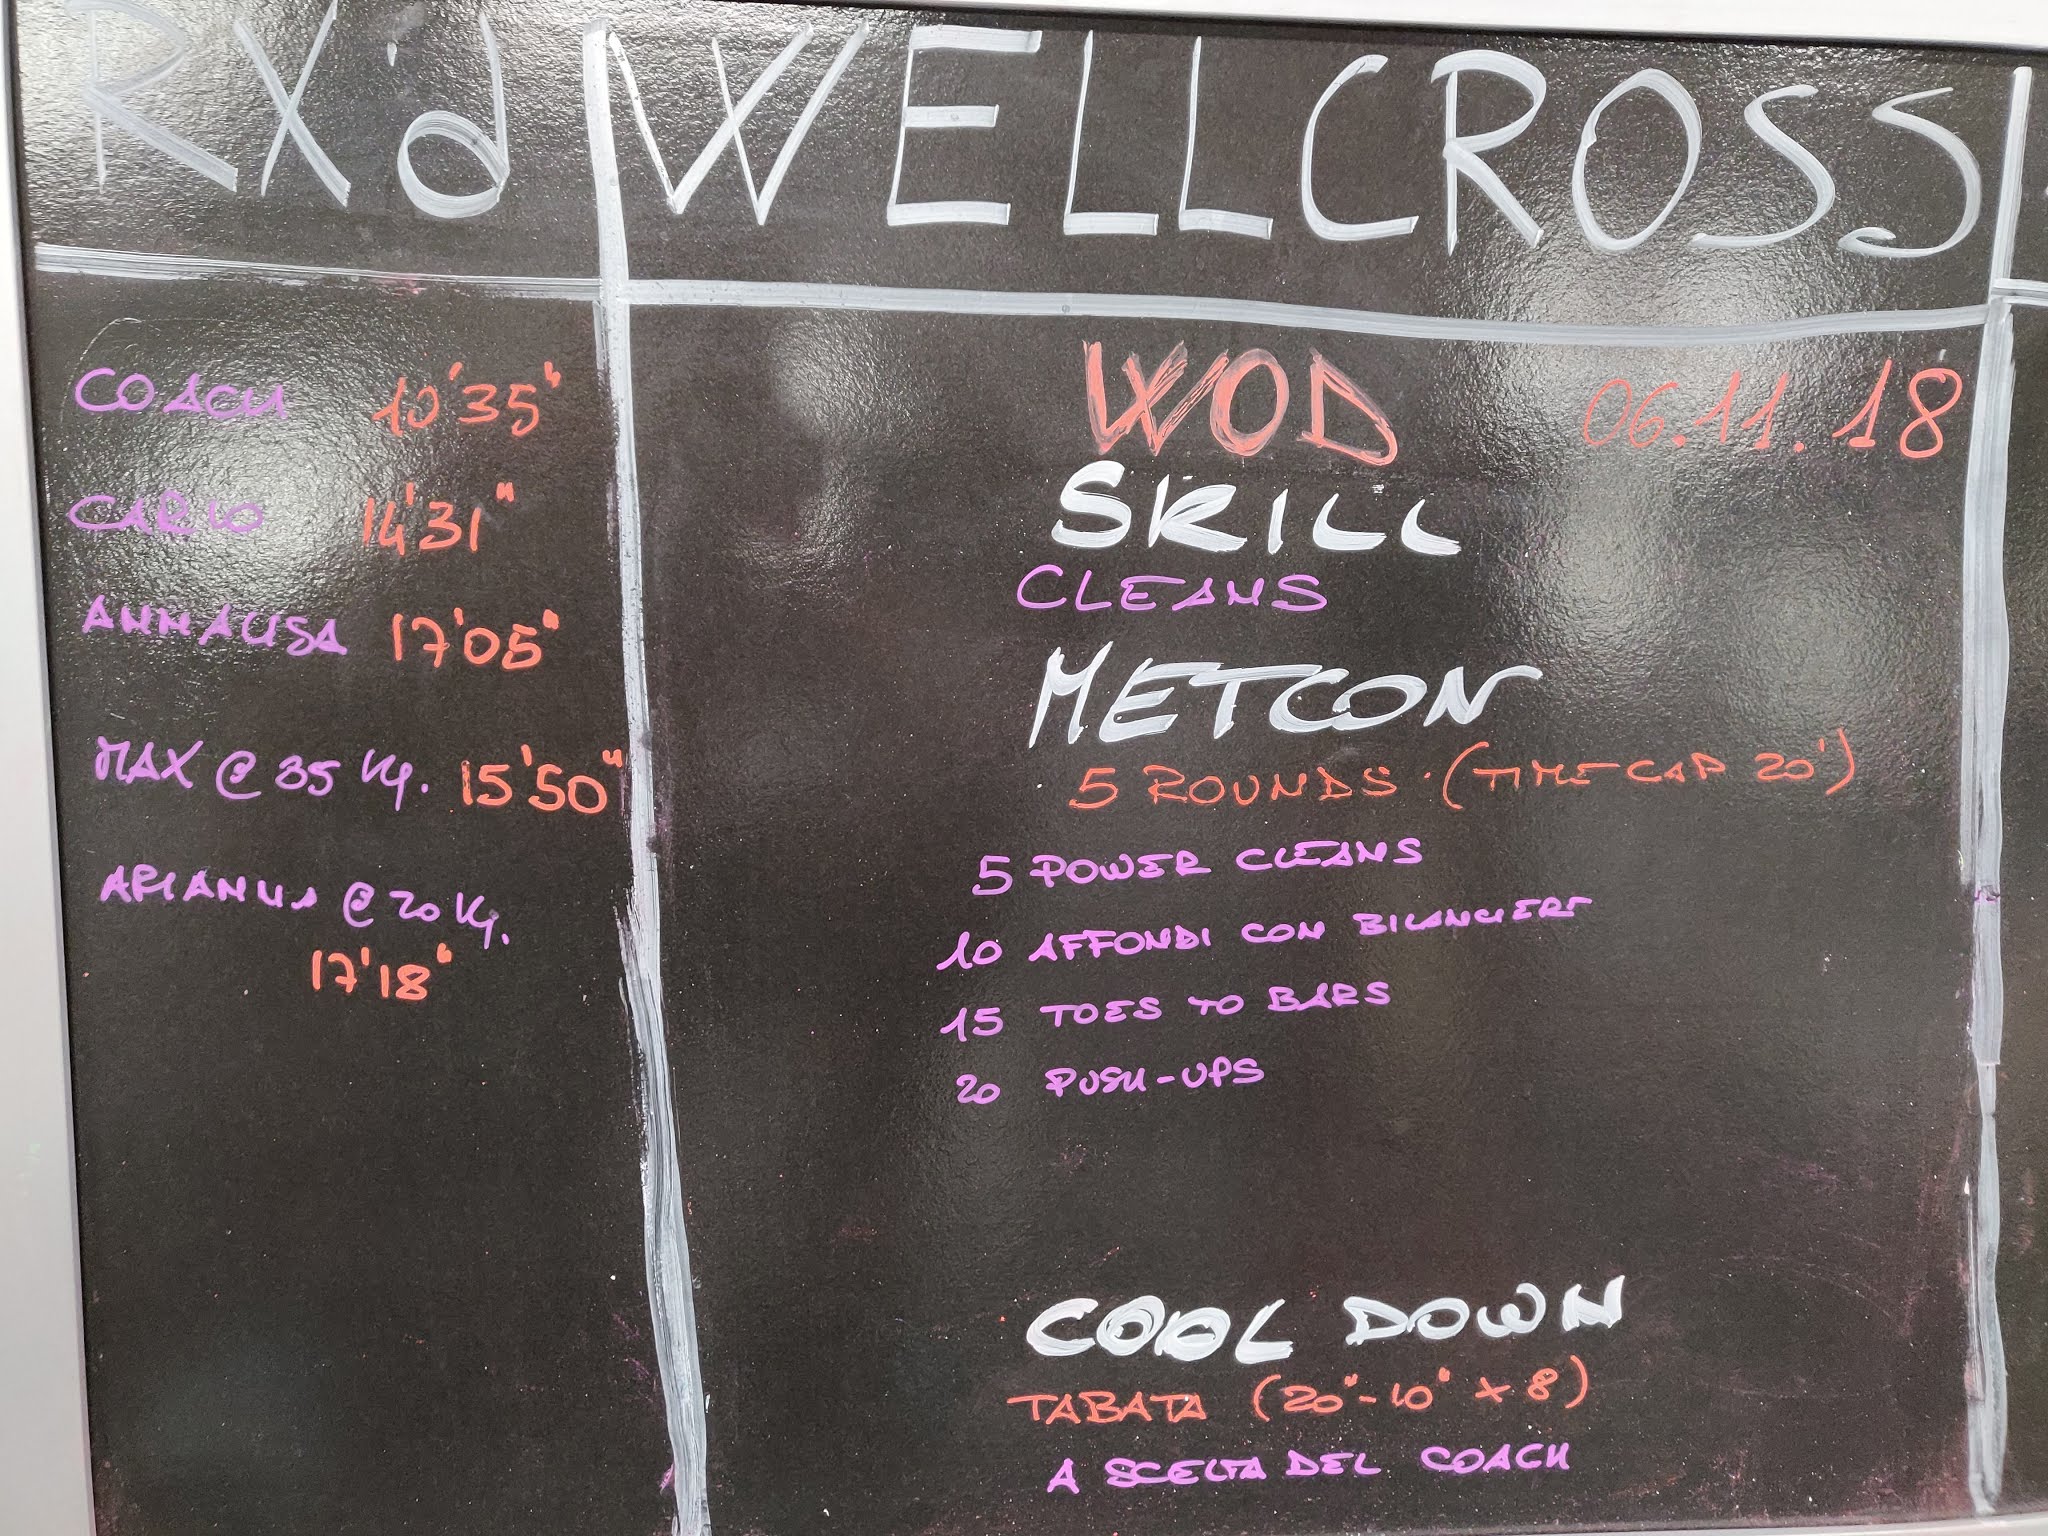 RX'd
COACH 10'35"
CARLO 14'31"
ANNALISA 17'05"
MAX @ 35 Kg. 15'50"
ARIANNA @ 20 Kg.
17'18"
WELLCROSS
WOD 06.11.18
SKILL
CLEANS
METCON
5 ROUNDS (TIME CAP 20')
5 POWER CLEANS
10 AFFONDI CON BILANCIERE
15 TOES TO BARS
20 PUSH-UPS
COOL DOWN
TABATA (20"-10" x 8)
A SCELTA DEL COACH